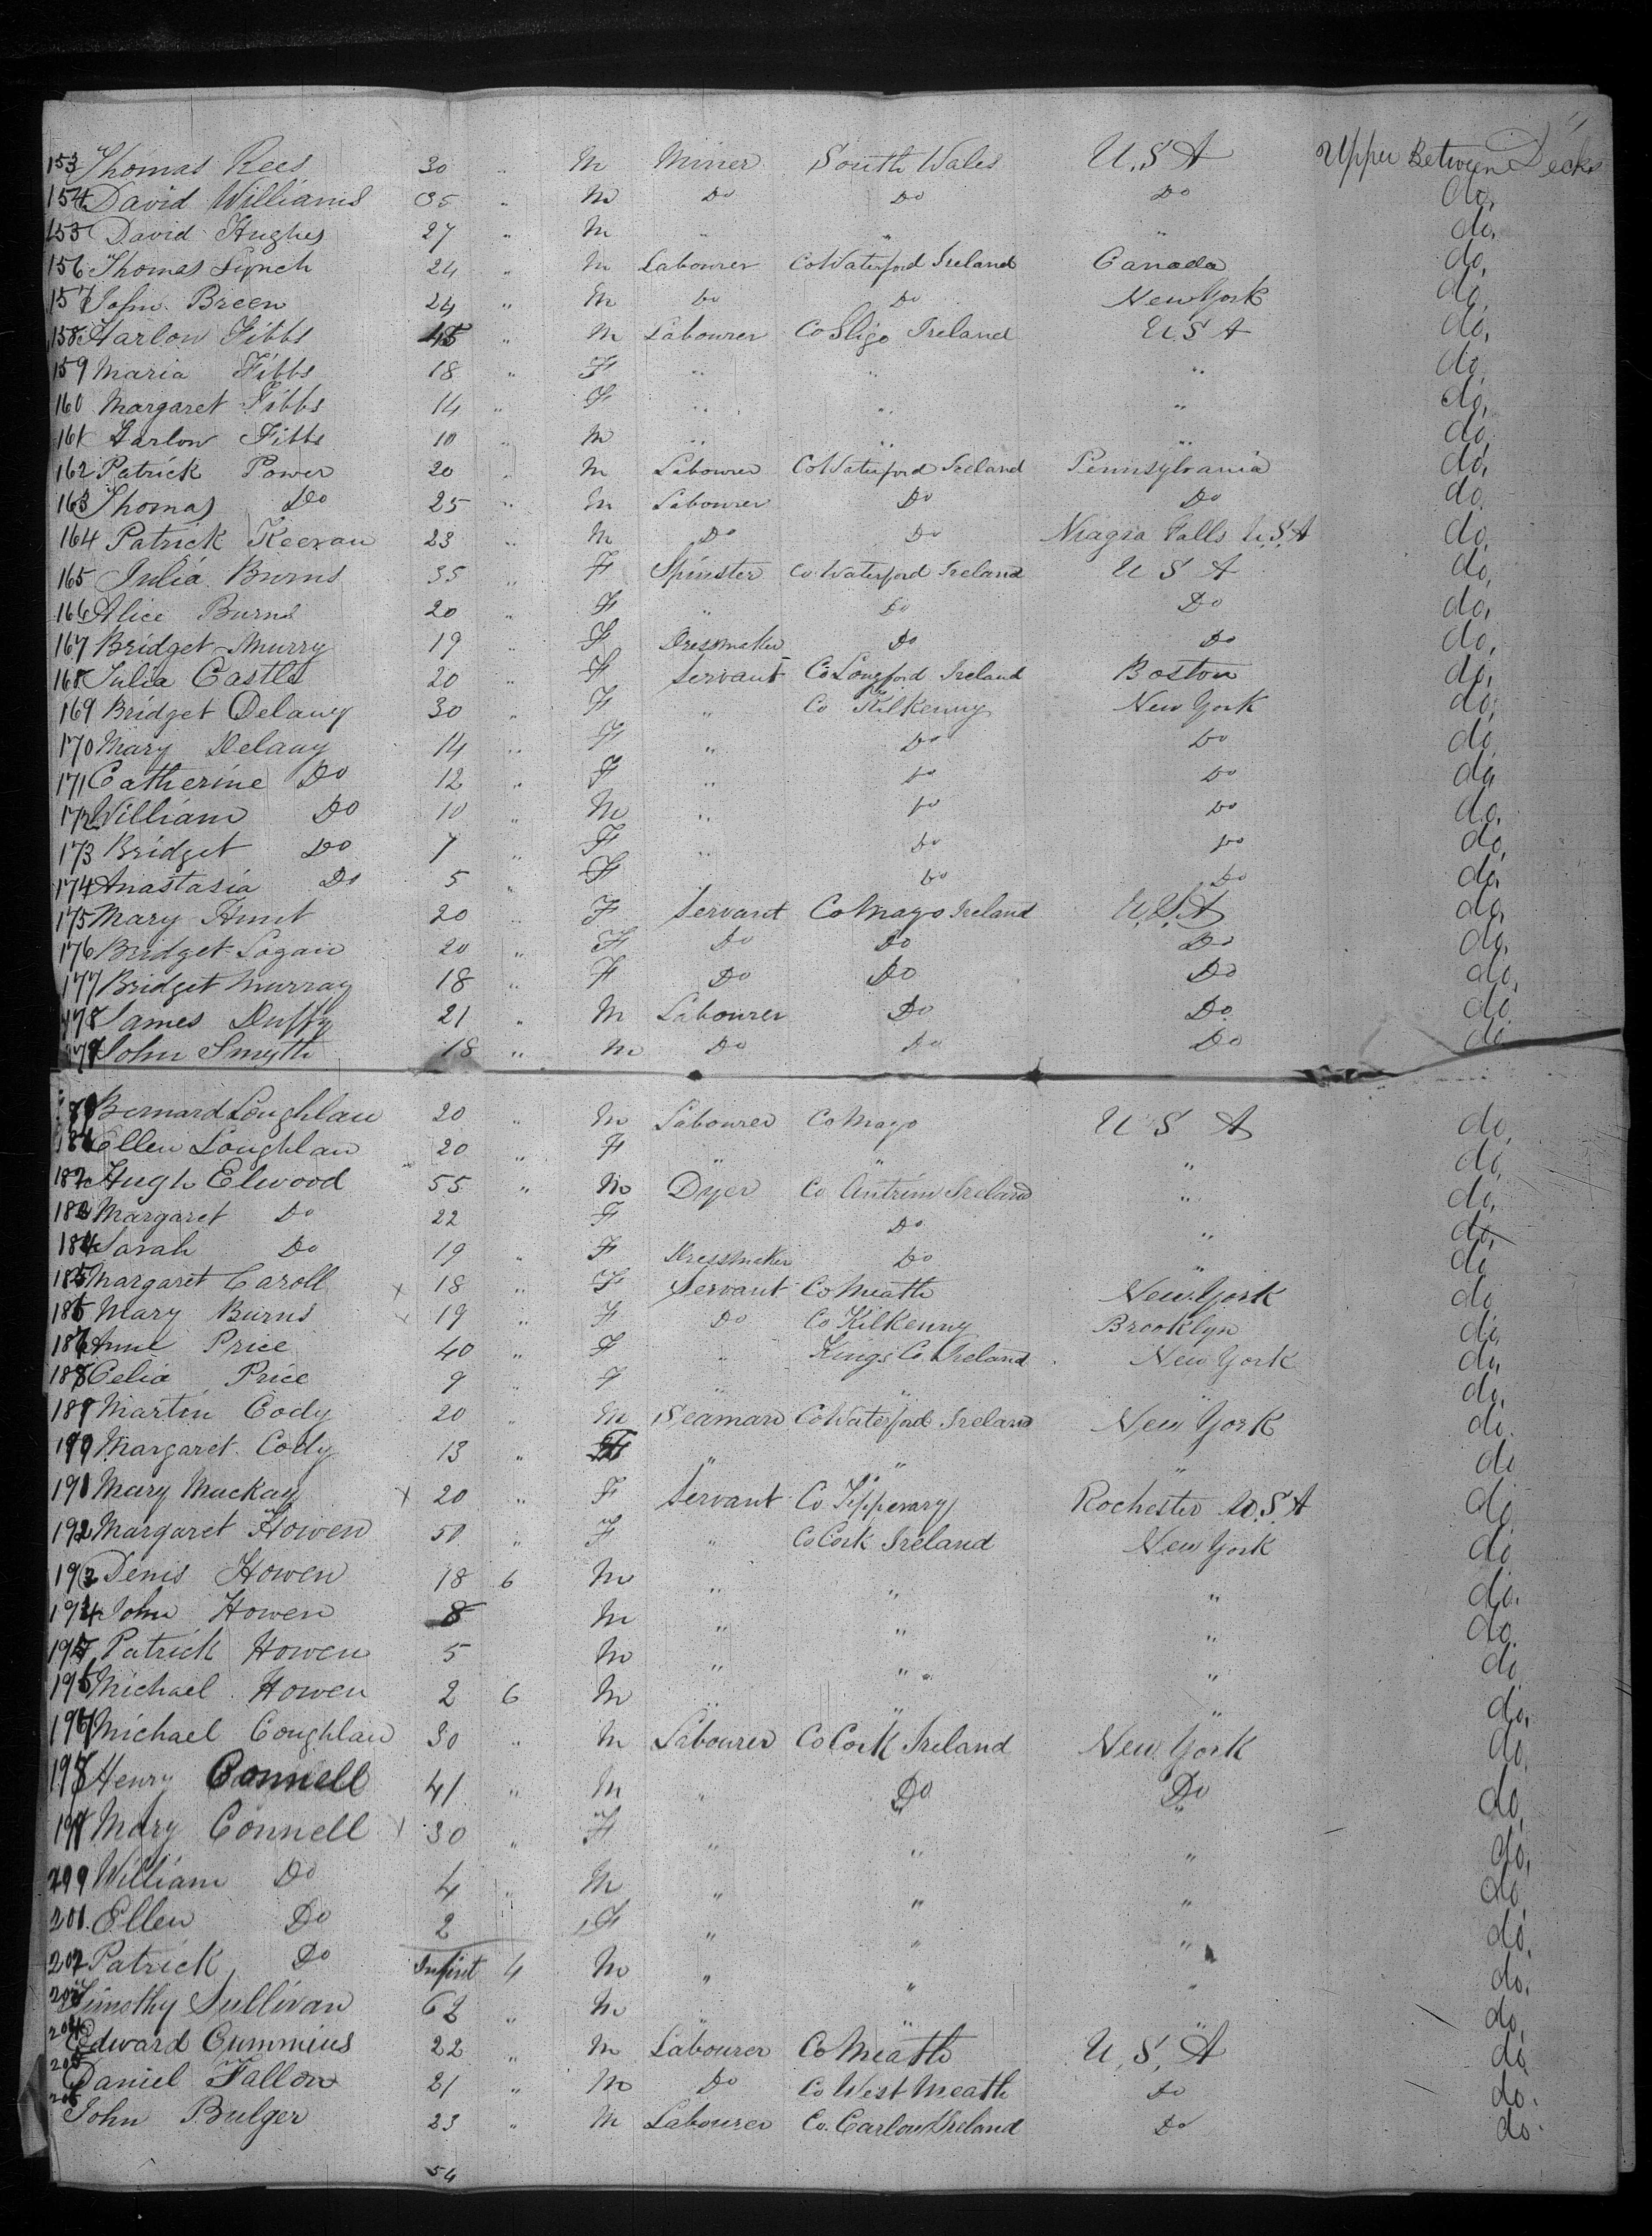 153 Thomas Rees 30 " M Miner South Wales U.S.A Upper Between Decks
154 David Williams 35 " M Do Do Do do.
155 David Hughes 27 " M " " " do.
156 Thomas Lynch 24 " M Labourer Co Waterford Ireland Canada do.
157 John Breen 24 " M Do Do New York do.
158 Harlow Fibbs 45 " M Labourer Co Sligo Ireland U S A do.
159 Maria Fibbs 18 " F " " " do.
160 Margaret Fibbs 14 " F " " " do.
161 Harlow Fibbs 10 " M " " " do.
162 Patrick Power 20 " M Labourer Co Waterford Ireland Pennsylvania do.
163 Thomas Do 25 " M Labourer Do Do do.
164 Patrick Keeran 23 " M Do Do Niagra Falls U.S.A do.
165 Julia Burns 35 " F Spinster Co Waterford Ireland U S A do.
166 Alice Burns 20 " F " Do Do do.
167 Bridget Murry 19 " F Dressmaker Do Do do.
168 Julia Castle 20 " F Servant Co Longford Ireland Boston do.
169 Bridget Delany 30 " F " Co Kilkenny New York do.
170 Mary Delany 14 " F " Do Do do.
171 Catherine Do 12 " F " Do Do do.
172 William Do 10 " M " Do Do do.
173 Bridget Do 7 " F " Do Do do.
174 Anastasia Do 5 " F Do Do do.
175 Mary Hunt 20 " F Servant Co Mayo Ireland U.S.A do.
176 Bridget Logan 20 " F Do Do Do do.
177 Bridget Murray 18 " F Do Do Do do.
178 James Duffy 21 " M Labourer Do Do do.
179 John Smyth 18 " M Do Do Do do
180 Bernard Loughlan 20 " M Labourer Co Mayo U S A do.
181 Ellen Loughlan 20 " F " " " do.
182 Hugh Elwood 55 " M Dyer Co Antrim Ireland " do.
183 Margaret Do 22 F Do " do.
184 Sarah Do 19 " F Dressmaker Do " do
185 Margaret Caroll x 18 " F Servant Co Meath New York do
186 Mary Burns x 19 " F Do Co Kilkenny Brooklyn do.
187 Anne Price 40 " F " Kings Co. Ireland New York do.
188 Celia Price 9 " F " " " do.
189 Martin Cody 20 " M Seaman Co Waterford Ireland New York do.
190 Margaret Cody 13 " F " " " do
191 Mary Mackay x 20 " F Servant Co Tipperary Rochester U.S.A do
192 Margaret Howen 50 " F " Co Cork Ireland New York do
193 Denis Howen 18 6 M " " " do.
194 John Howen 8 M " " " do.
195 Patrick Howen 5 M " " " do
196 Michael Howen 2 6 M " " " do.
197 Michael Coughlan 30 " M Labourer Co Cork Ireland New York do.
198 Henry Connell 41 " M " Do Do do.
199 Mary Connell x 30 " F " " " do.
200 William Do 4 " M " " " do.
201 Ellen Do 2 F " " " do.
202 Patrick Do Infint 4 M " " " do.
203 Timothy Sullivan 62 " M " " " do.
204 Edward Cummins 22 " M Labourer Co Meath U.S.A do.
205 Daniel Fallon 21 " M Do Co West Meath Do do.
206 John Bulger 23 " M Labourer Co. Carlow Ireland Do do.
54